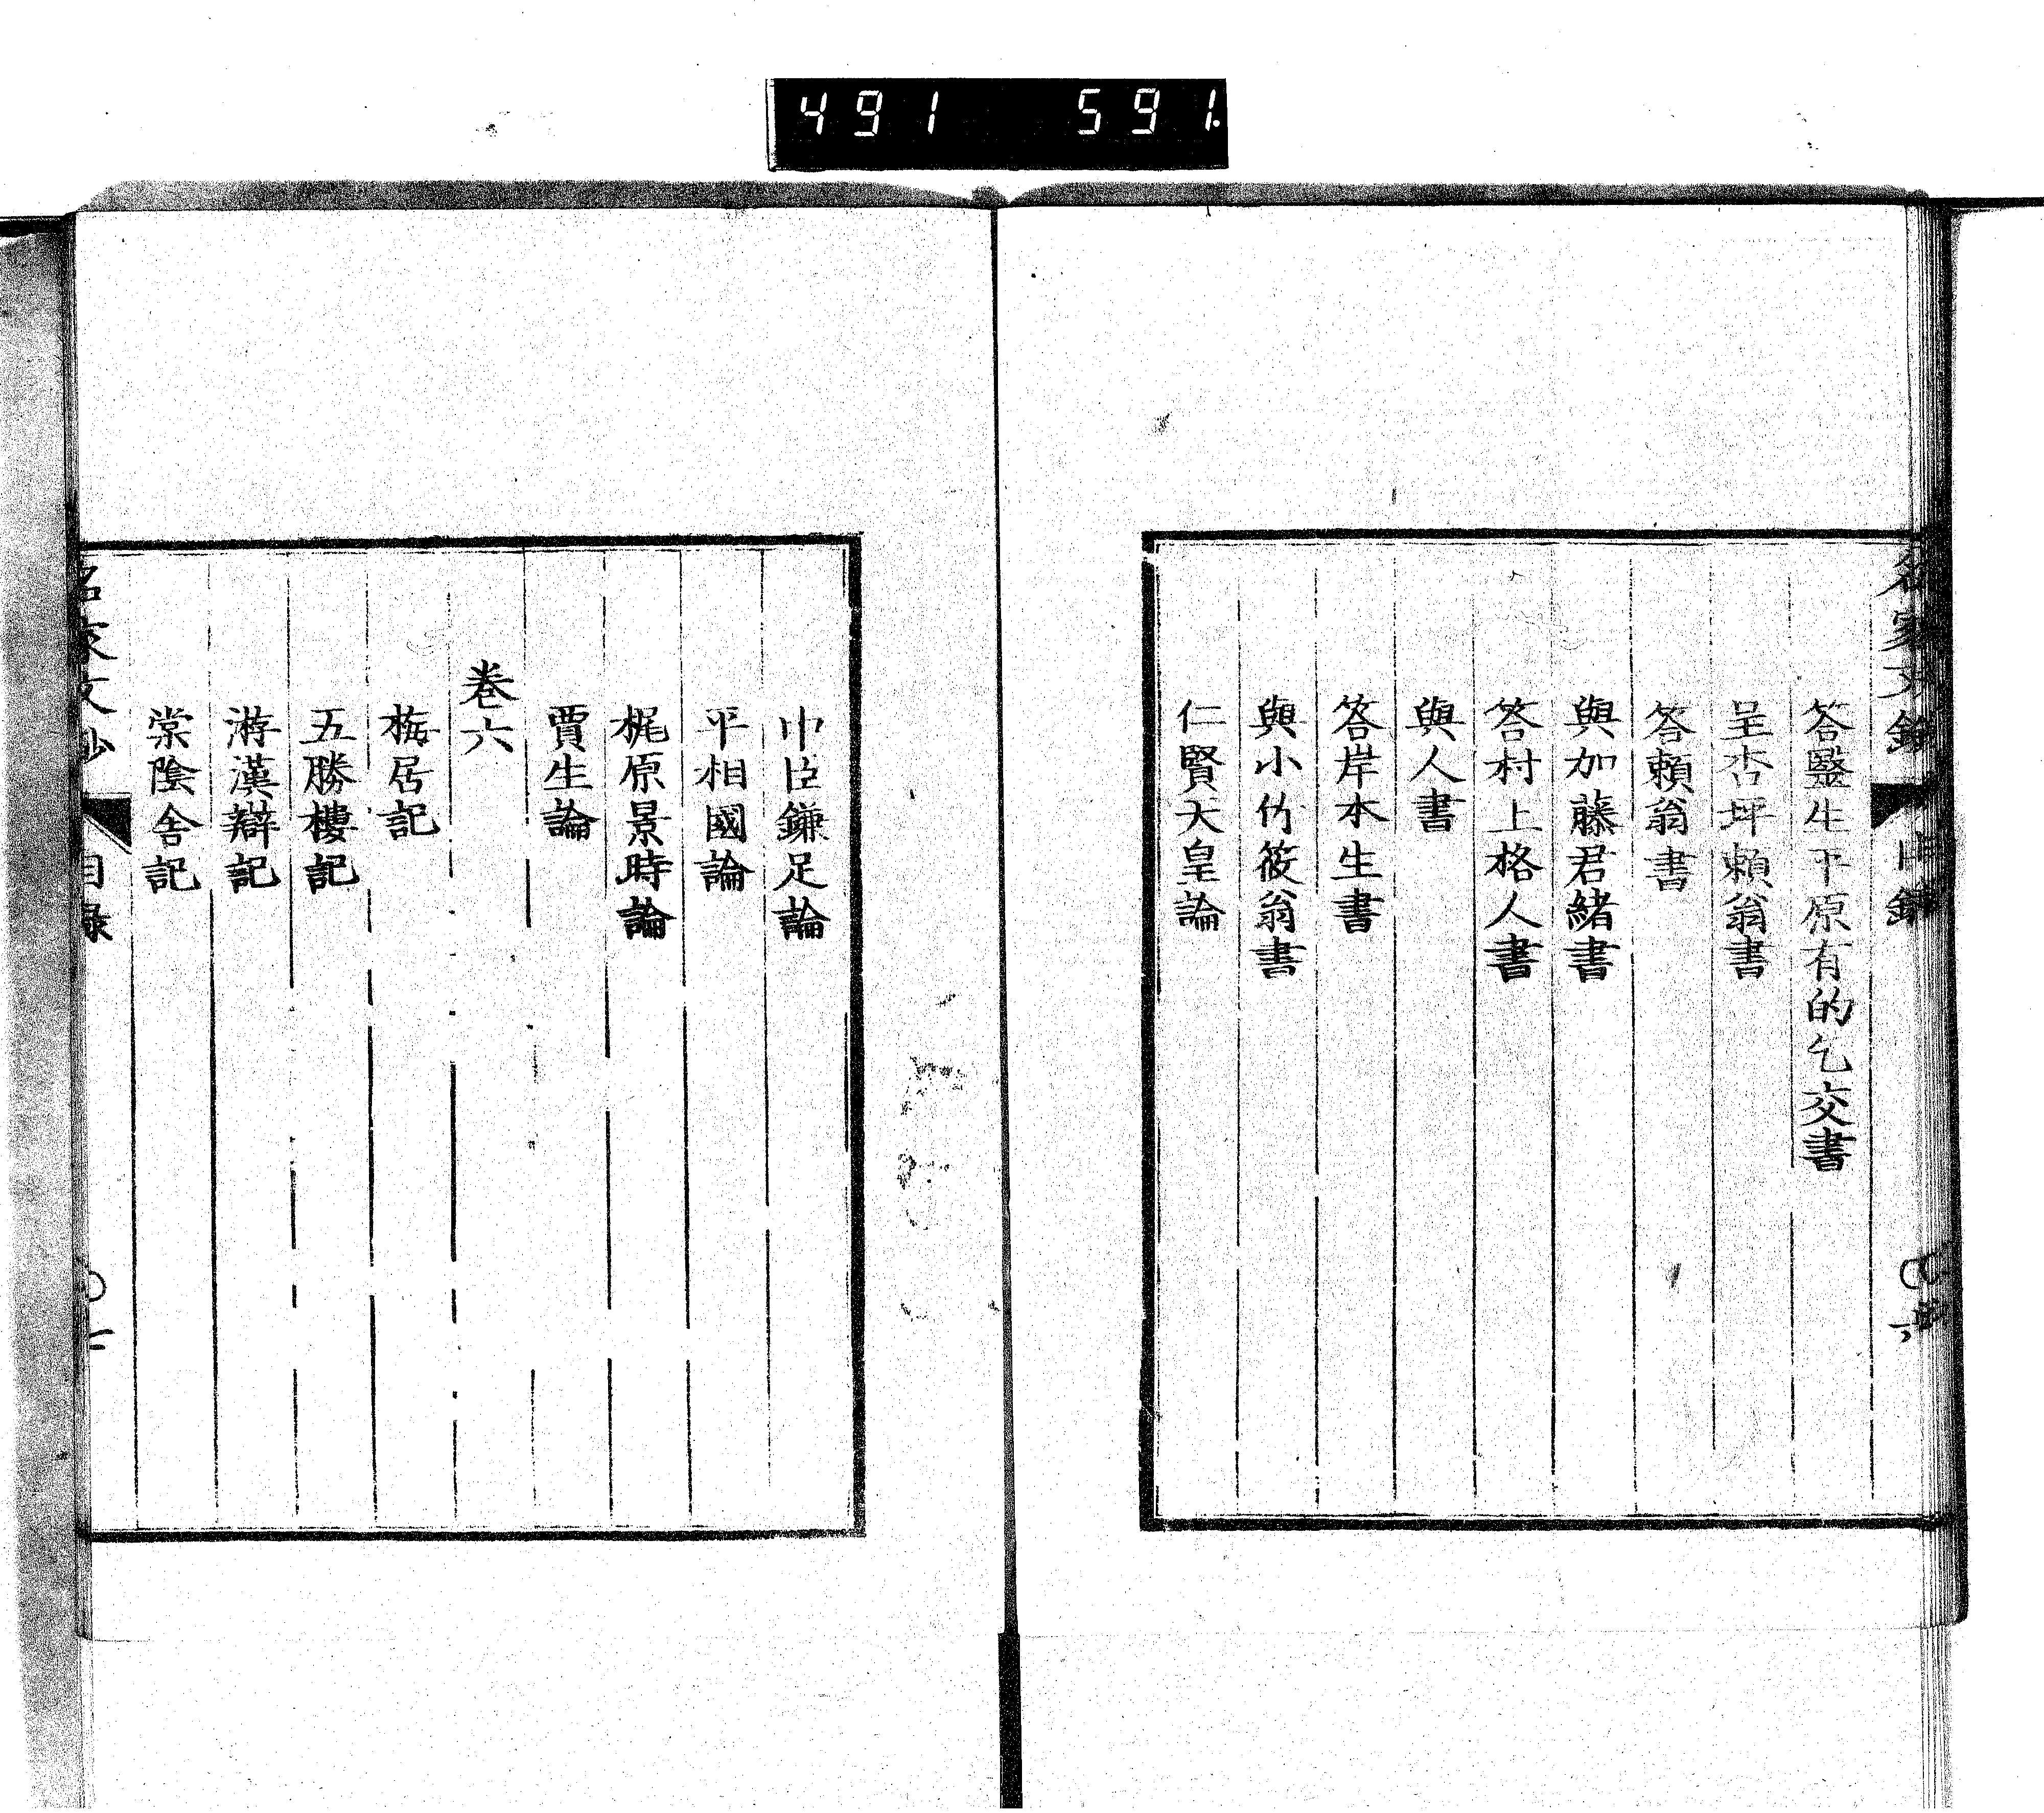 491 591.
答毉生平原有的乞交書
呈杏坪賴翁書
答賴翁書
與加藤君緒書
答村上格人書
與人書
答岸本生書
與小竹筱翁書
仁賢天皇論
中臣鎌足論
平相國論
梶原景時論
賈生論
卷六
梅居記
五勝樓記
游漢辯記
棠陰舍記
名家文鈔 目錄